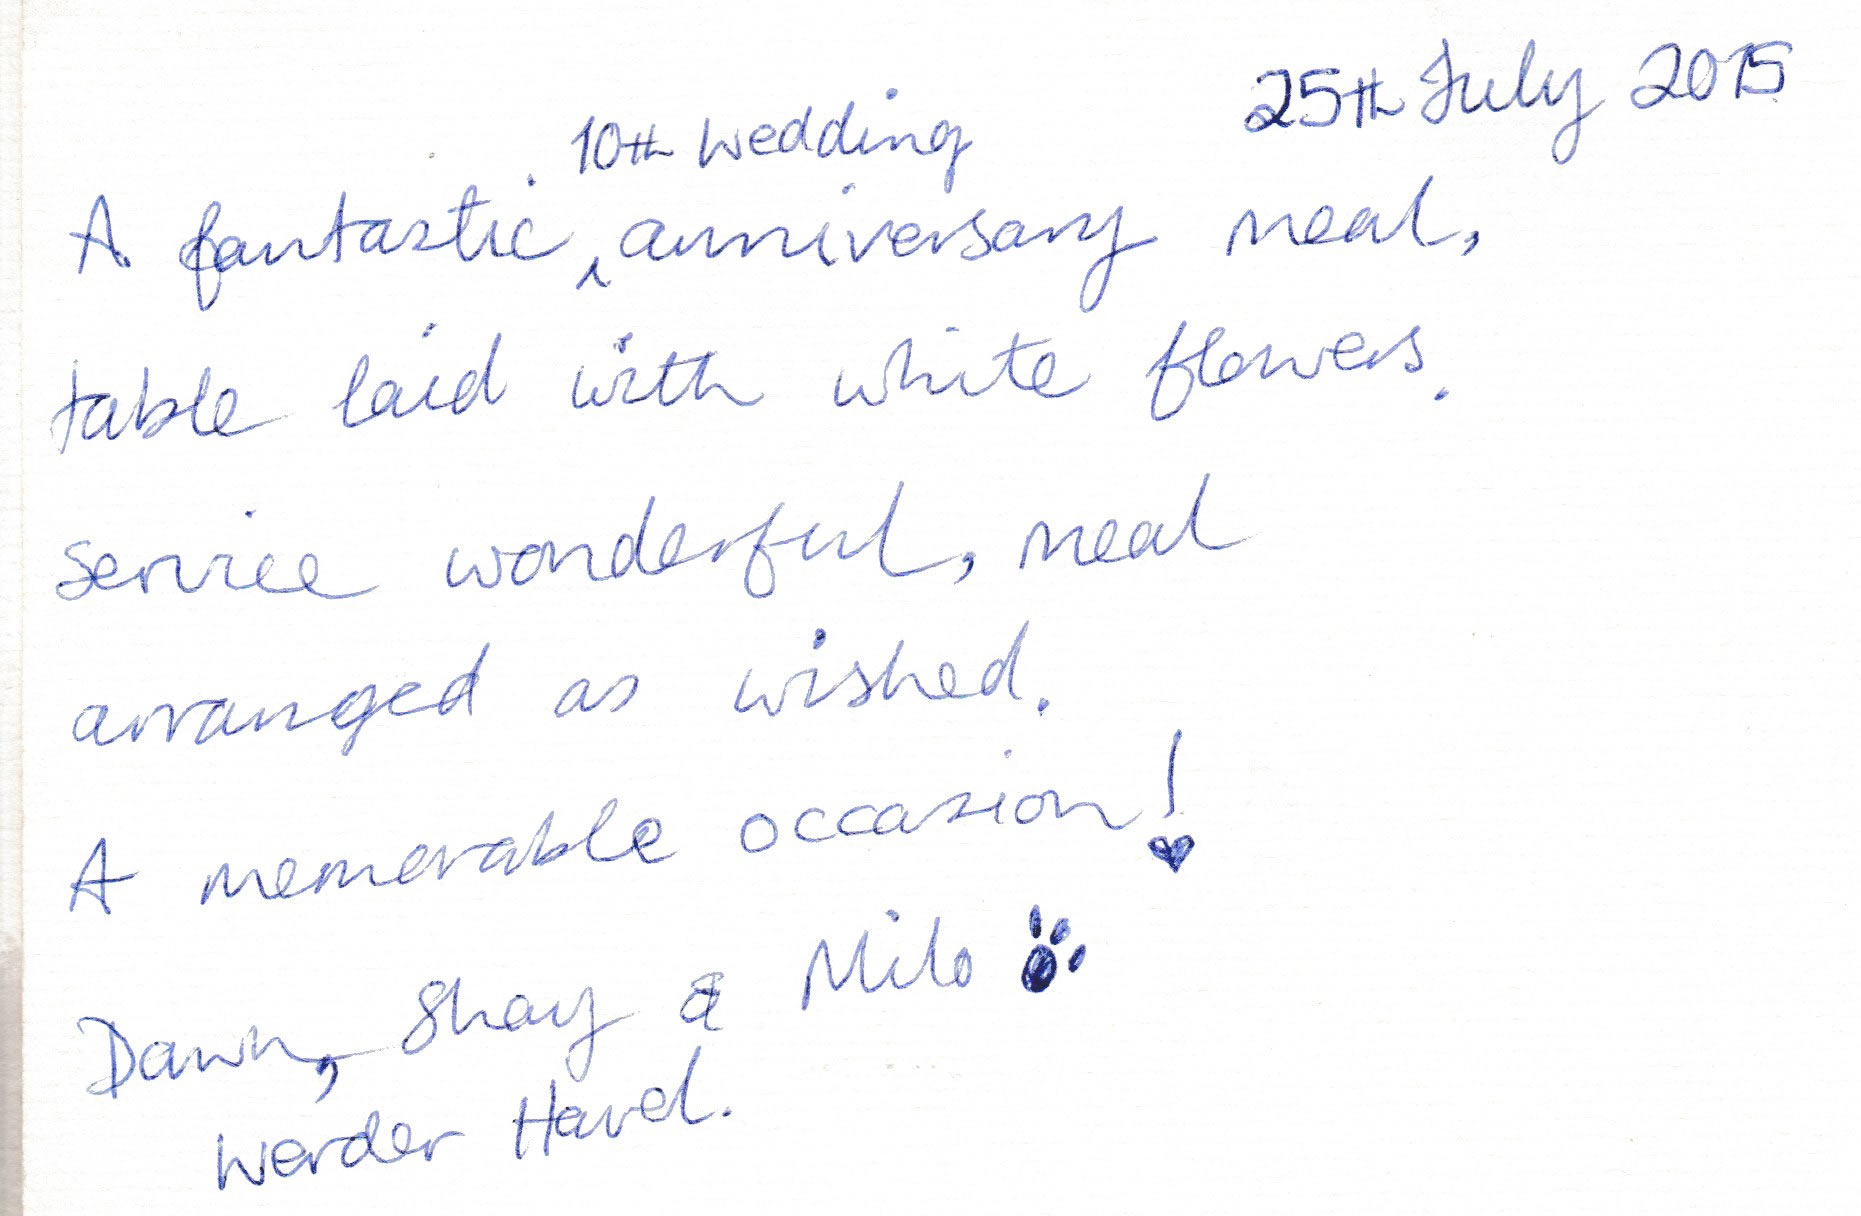 25th July 2015
10th wedding
A fantastic ^ anniversary meal,
table laid with white flowers.
service wonderful, meal
arranged as wished.
A memorable occasion!
Dawn, Shay & Milo
Werder Havel.